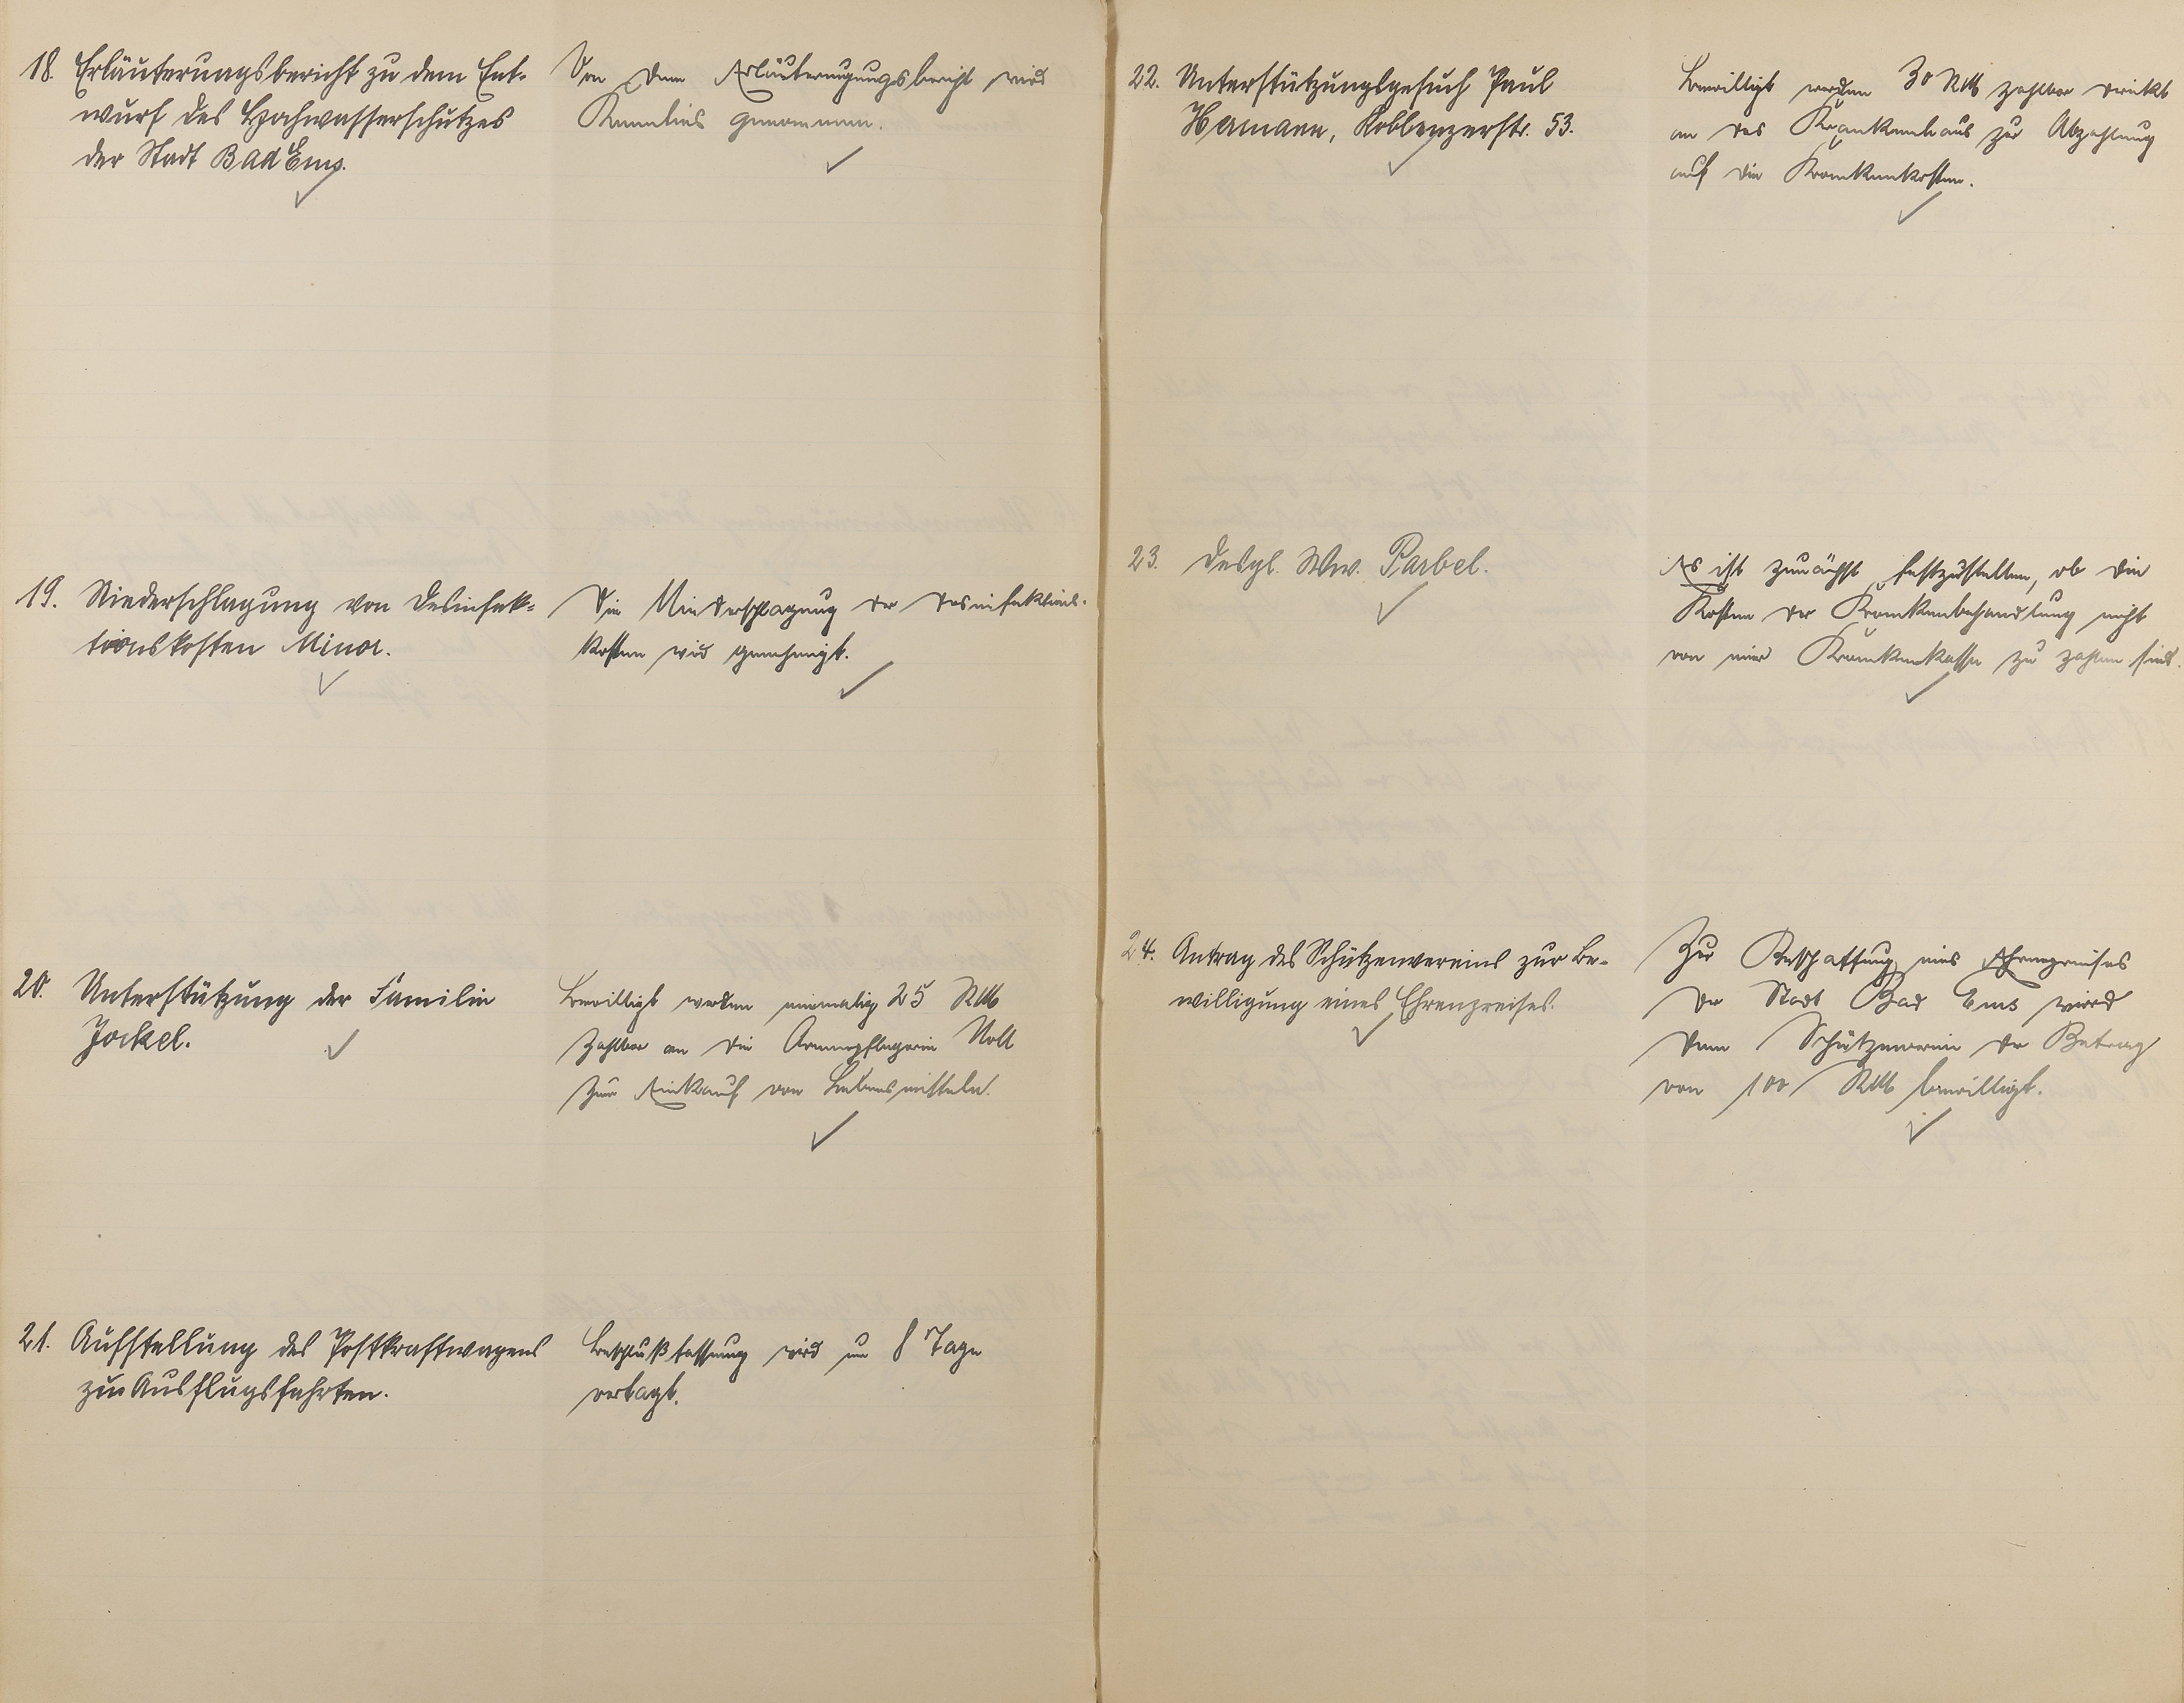 18. Erläuterungsbericht zu dem Ent-
wurf des Hochwasserschutzes
der Stadt Bad Ems.
Von dem Erläuterungungsbericht wird
Kenntnis genommen.
19. Niederschlagung von Desinfek-
tionskosten Minor.
Die Niederschlagung der Desinfektions-
kosten wird genehmigt.
20. Unterstützung der Familie
Jockel.
Bewilligt werden einmalig 25 RM
zahlbar an die Armenpflegerin Noll
zum Einkauf von Lebensmitteln.
21. Aufstellung des Postkraftwagens
zu Ausflugsfahrten.
Beschlußfassung wird um 8 Tage
vertagt.
22. Unterstützungsgesuch Paul
Hamann, Koblenzerstr. 53.
Bewilligt werden 30 RM zahlbar direkt
an das Krankenhaus zur Abzahlung
auf die Krankenkosten.
23. Desgl. Ww. Parbel.
Es ist zunächst festzustellen, ob die
Kosten der Krankenbehandlung nicht
von einer Krankenkasse zu zahlen sind.
24. Antrag des Schützenvereins zur Be-
willigung eines Ehrenpreises.
Zur Beschaffung eines Ehrenpreises
der Stadt Bad Ems wird
dem Schützenverein der Betrag
von 100 RM bewilligt.